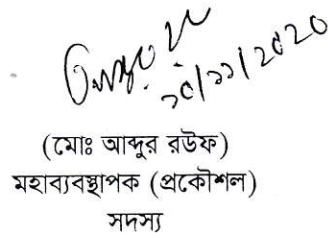 ২০/১১/2020
(মোঃ আব্দুর রউফ)
মহাব্যবস্থাপক (প্রকৌশল)
সদস্য